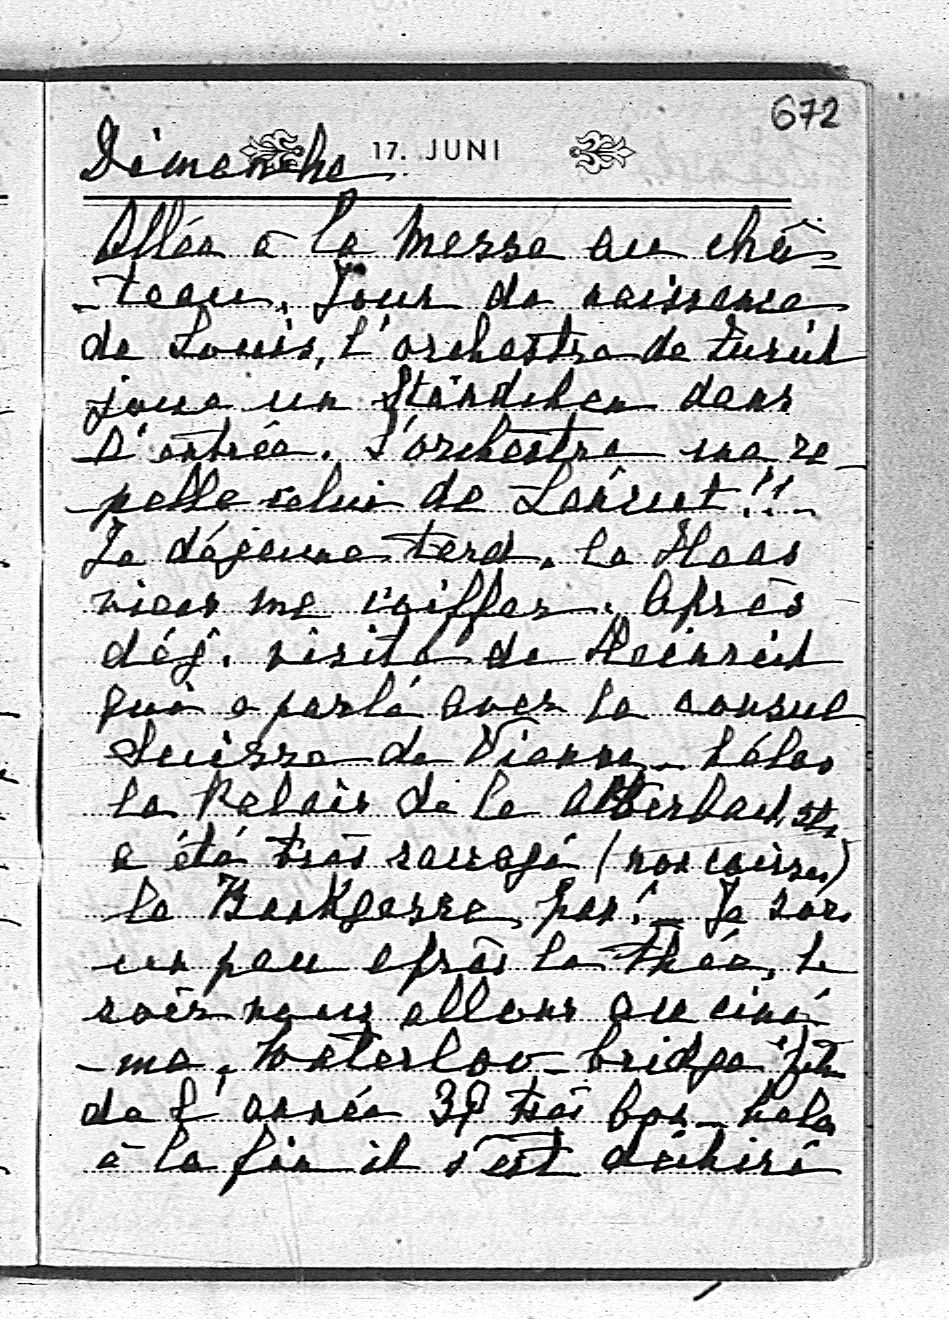 672
17. JUNI
Dimanche
Allée à la Messe au châ=
-teau. Jour de naissance
de Louis, l'orchestre de
joue un Ständchen dans
l'entrée. L'orchestre me re
-pelle celui de !!
Je déjeune tard. la Haas
viens me coiffer. Après
déj. visite de Heinrich
qui a parlé avec le consul
Suisse de Vienne - hélas
le Palais de la
a été très ravagé (nos caisses)
la Bankgasse pas! - Je sors
un peu après le thée, le
soir nous allons au ciné
-ma, Waterloo-bridge film
de l'année 39 très bon - helas
à la fin il s'est déchiré